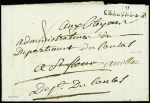 CHALONS-S-M
aux Citoyens
administrateurs du
Departement du Cantal
a St flour
Dep.t du Cantal